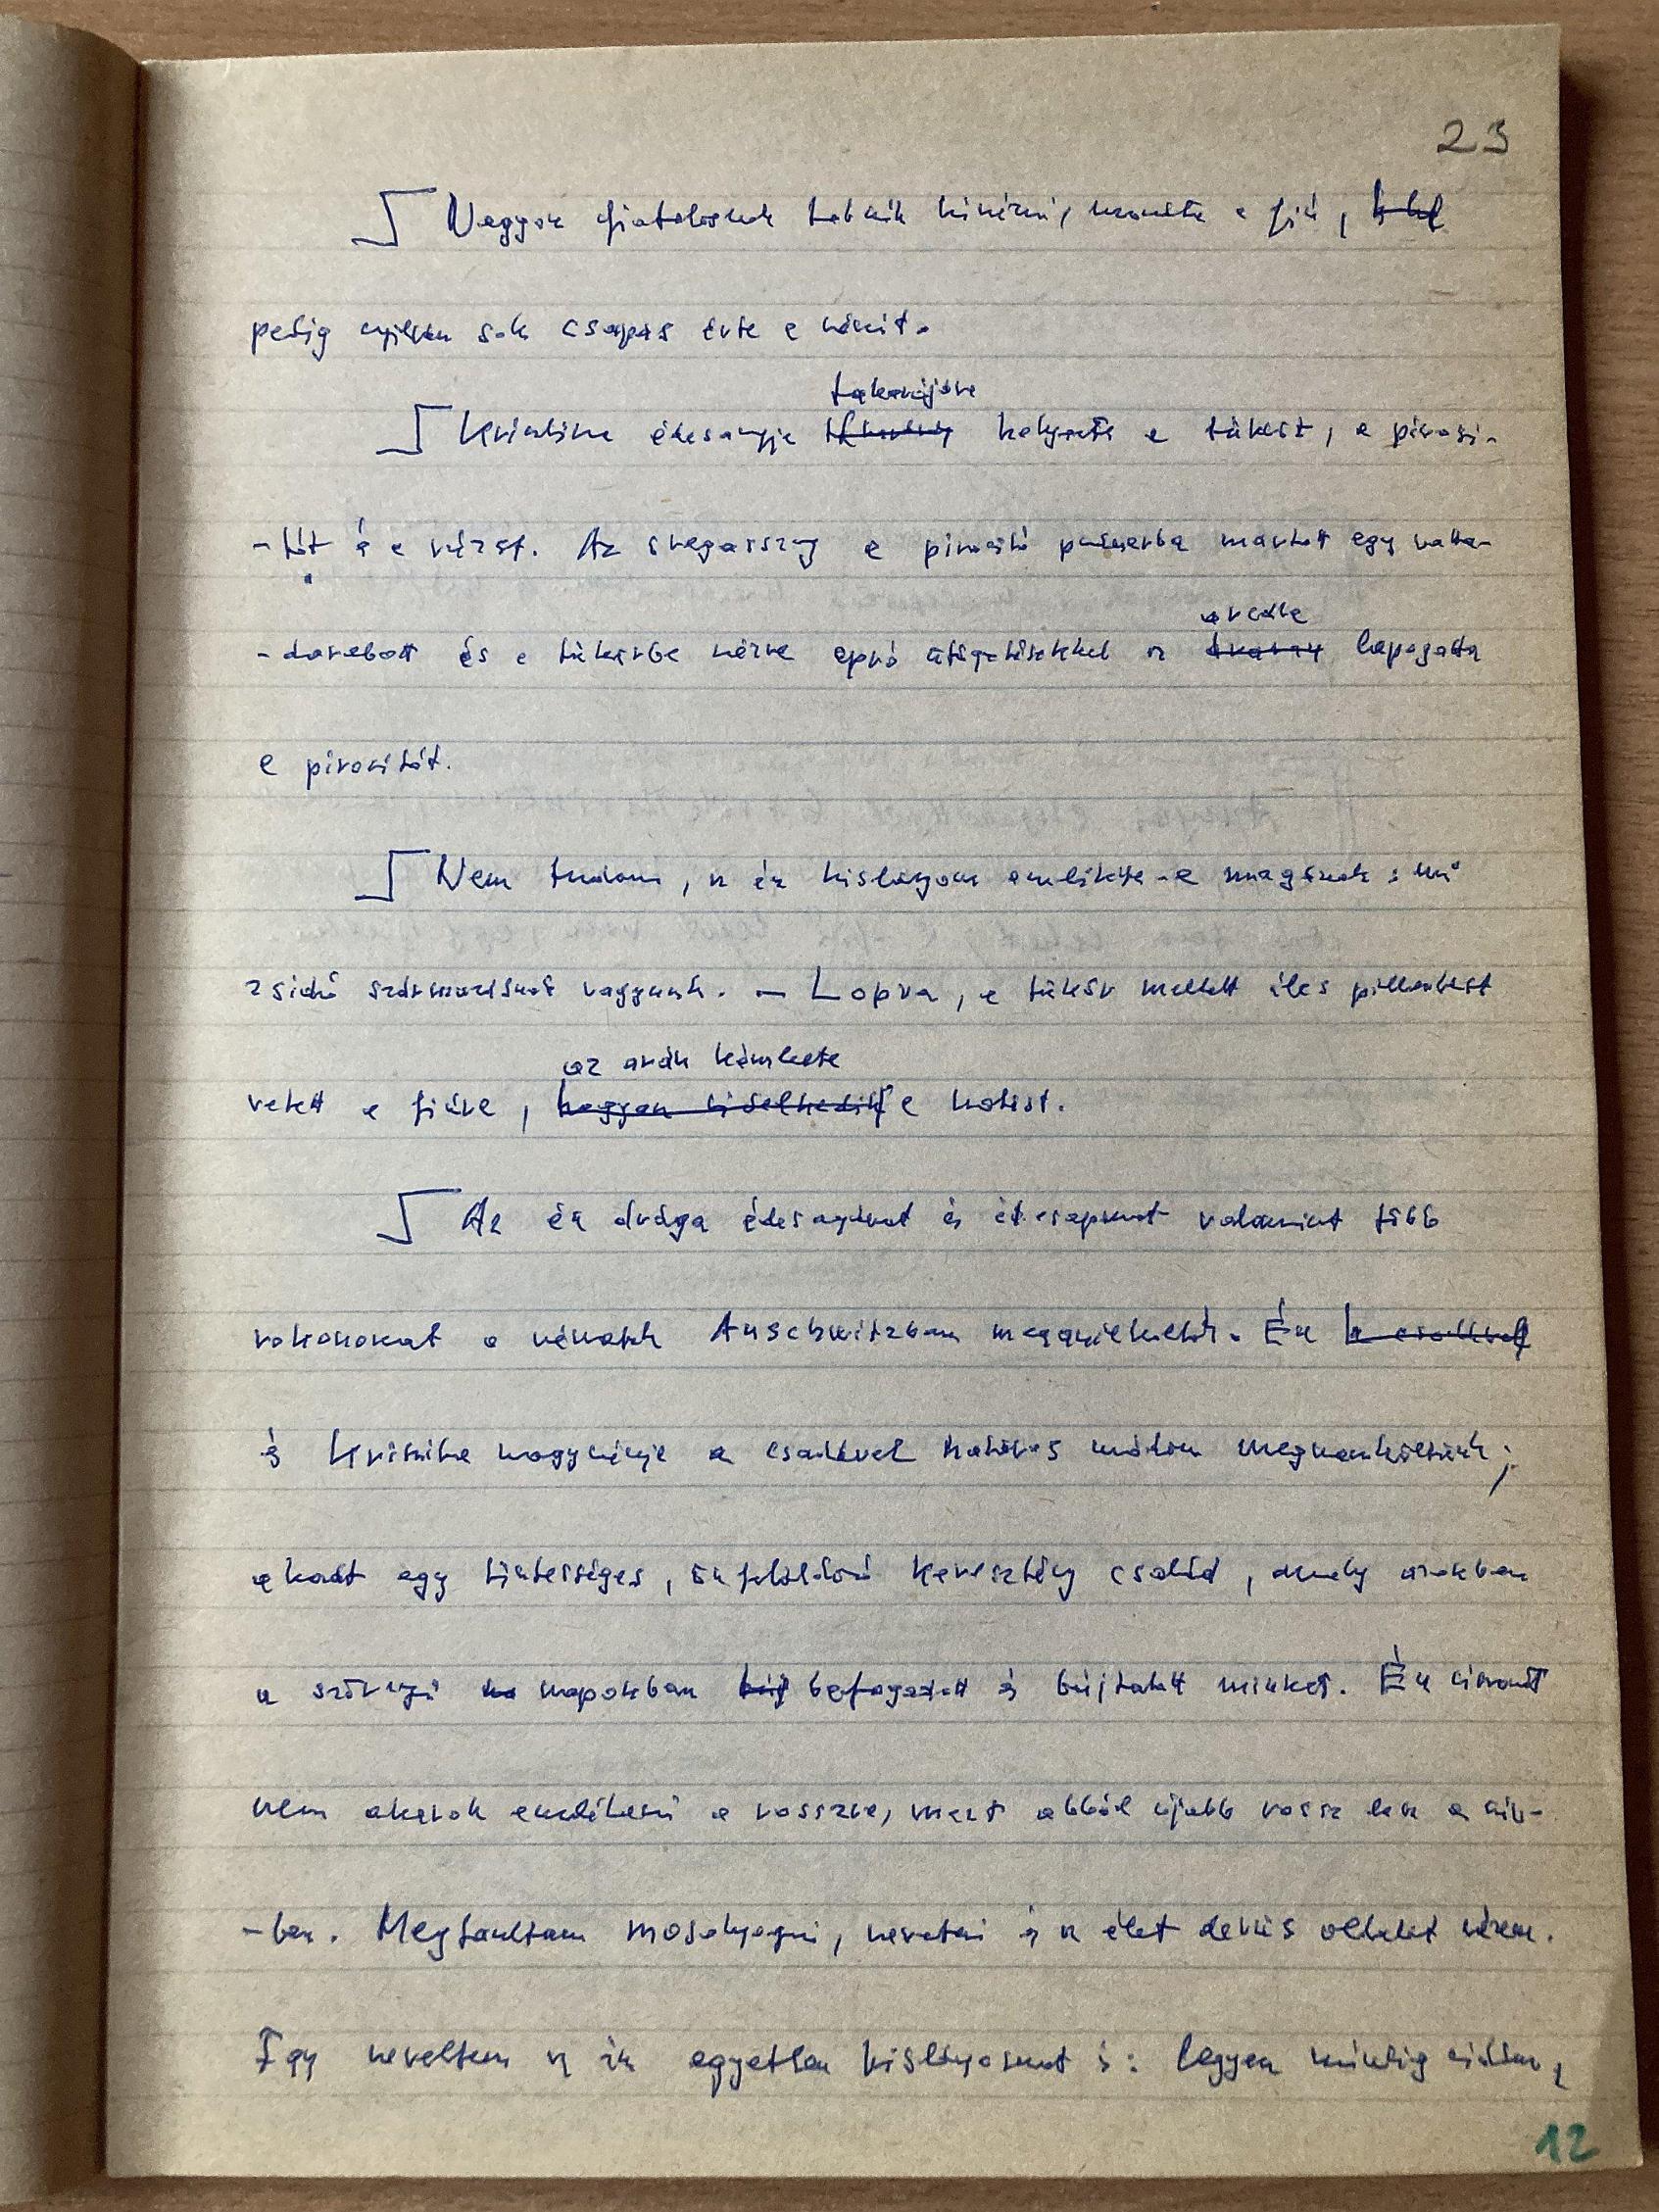 23
Nagyon fiatalosnak tetszik kinézni, mondta a fiú,
pedig nyilván sok csapás érte a nénit.
takarójára
Krisztina édesanyja helyezte a tükröt, a pirosi-
-tót és a rúzst. Az öregasszony a pirosító púderba mártott egy vatta-
arcába
-darabott és a tükörbe nézve apró ütögetésekkel az lapogatta
a pirosítót.
Nem tudom, az én kislányom említette-e magának: mi
zsidó származásuak vagyunk. - Lopva, a tükör mellett éles pillantást
az arcán kémlelte
vetett a fiúra, hogyan viselkedik a hatást.
Az én drága édesanyámat és édesapámat valamint több
rokonokat a németek Auschwitzban meggyilkolták. Én a családdal
és Krisztina nagynénje a családdal kalandos módon megmenekültünk;
akadt egy tisztességes, önfeláldozó keresztény család, amely azokban
a szörnyű napokban befogadott és bújtatott minket. Én viszont
nem akarok emlékezni a rosszra, mert abból újabb rossz lesz a szív-
-ben. Megtanultam mosolyogni, nevetni és az élet derűs oldalát nézem.
Így neveltem az én egyetlen kislányomat is: legyen mindig vidám,
12